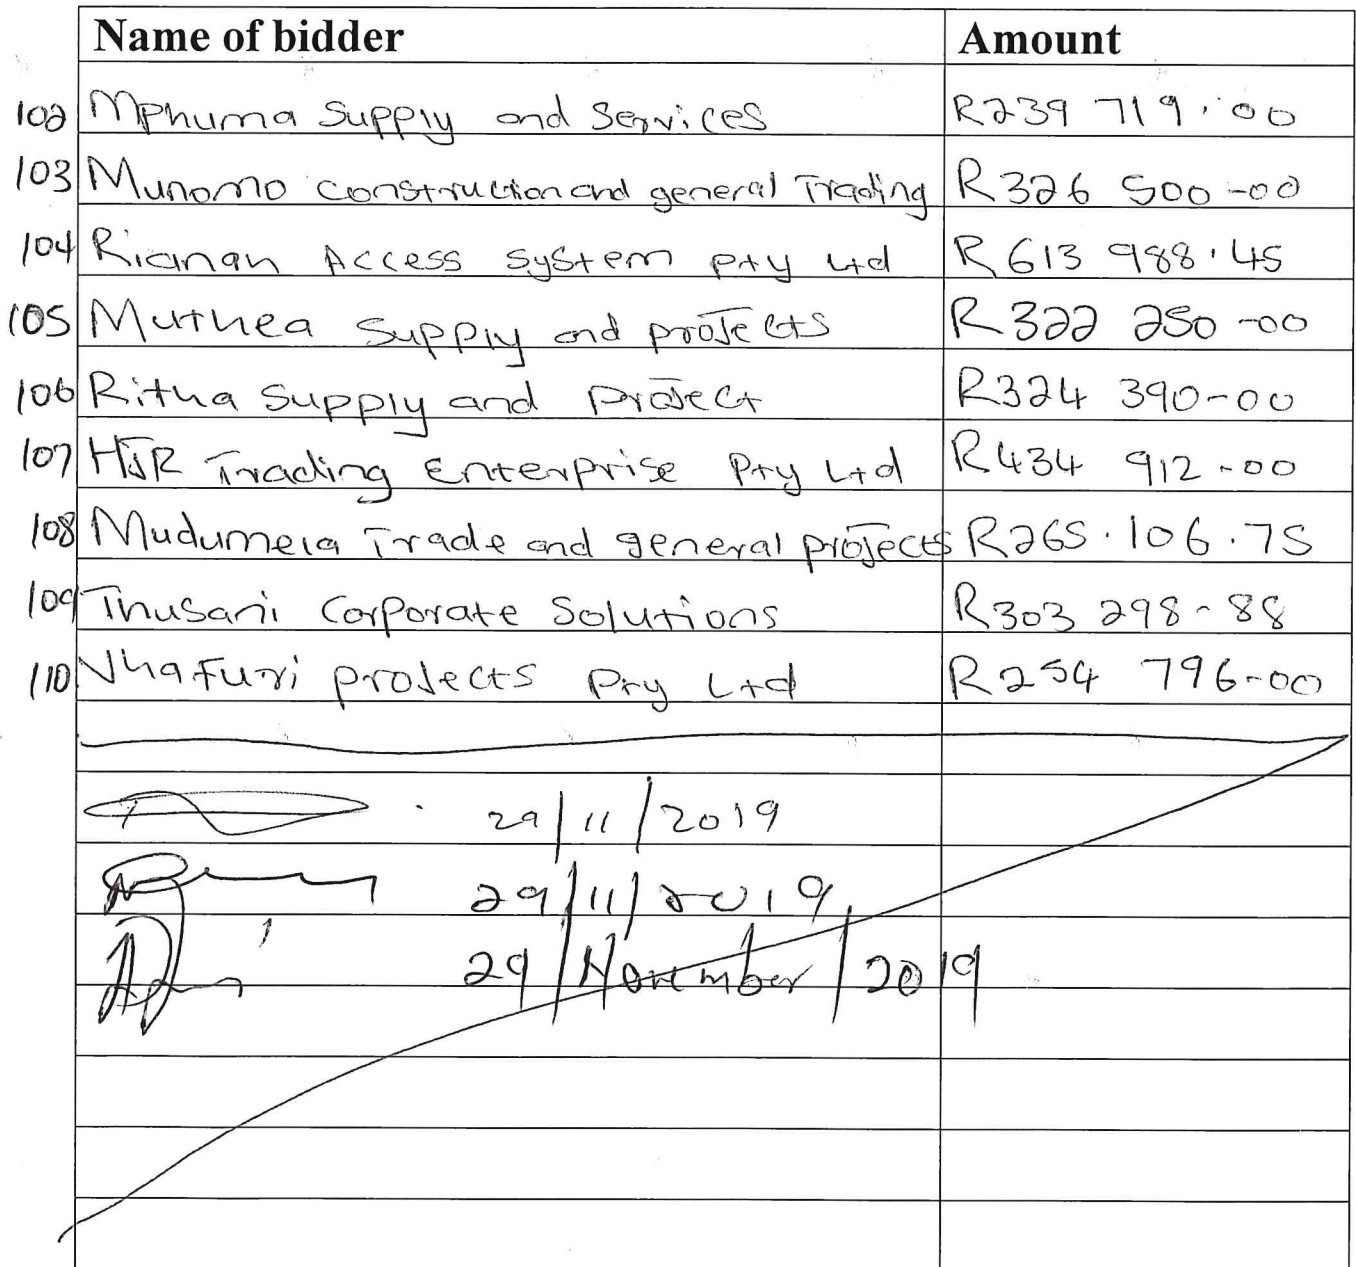 Name of bidder Amount
102 Mphuma Supply and Services R239 719.00
103 Munomo construction and general Trading R326 500-00
104 Rianan Access System Pty Ltd R613 988.45
105 Muthea Supply and projects R322 250-00
106 Ritha Supply and Project R324 390-00
107 HJR Trading Enterprise Pty Ltd R434 912-00
108 Mudumela Trade and general projects R265.106.75
109 Thusani Corporate Solutions R303 298-88
110 Vhafuri projects Pty Ltd R254 796-00
29/11/2019
29/11/2019
29/November/2019